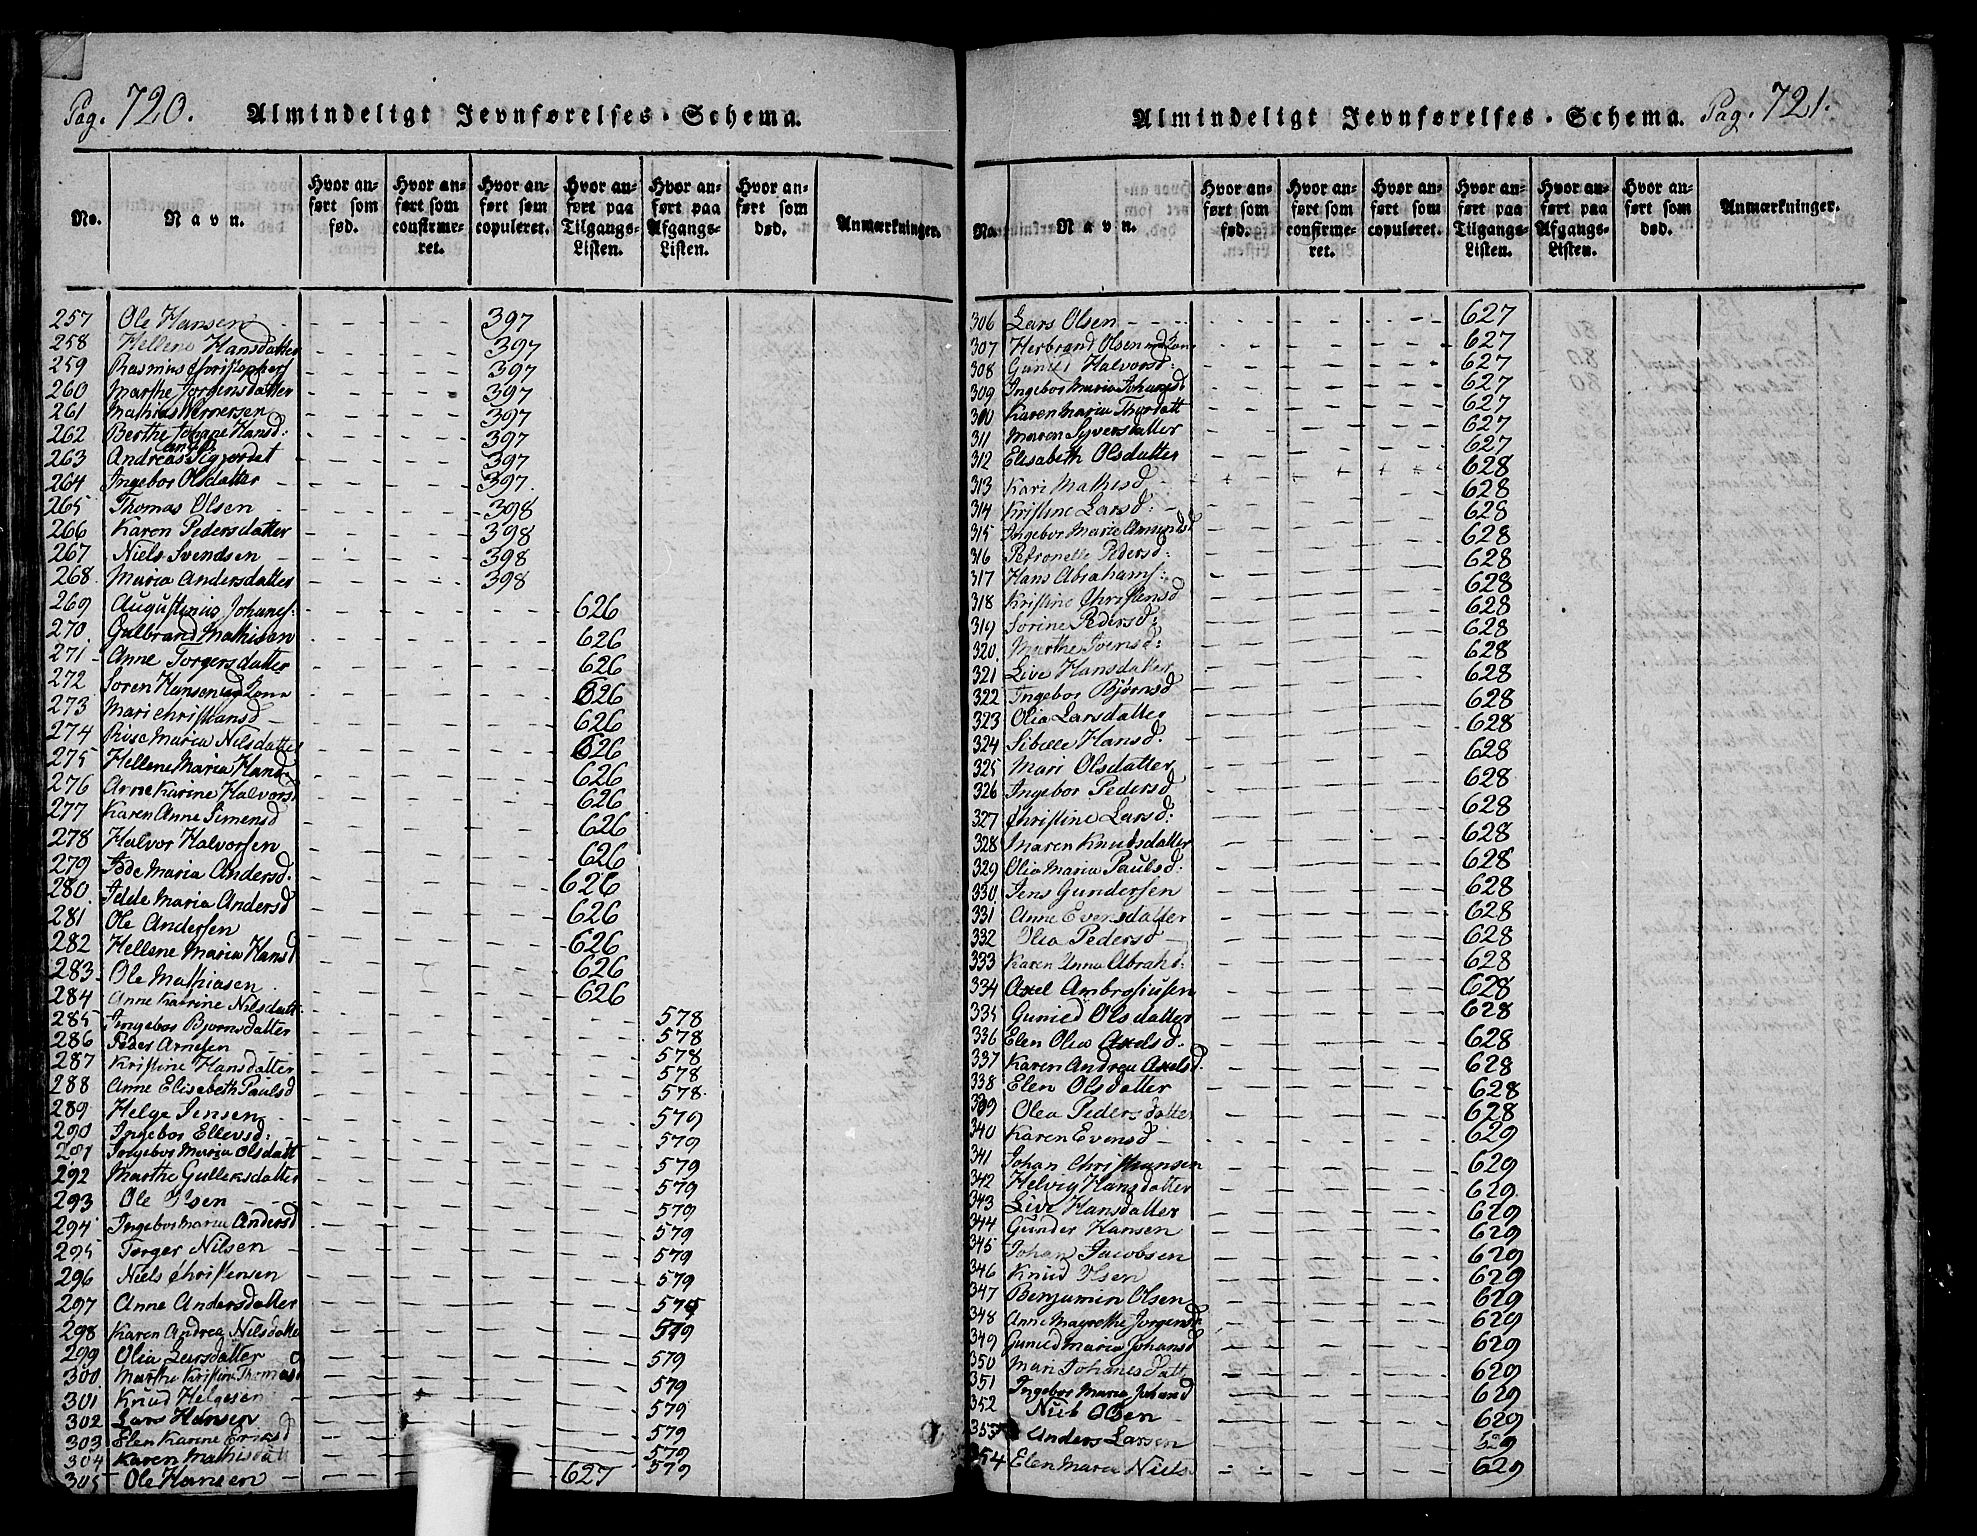 Pag. 720. Almindeligt Jevnførelses-Schema.
No. Navn. Hvor anført som fød. Hvor anført som confirmeret. Hvor anført som copuleret. Hvor anført paa Tilgangs-Listen. Hvor anført paa Afgangs-Listen. Hvor anført som død. Anmærkninger.
257 Ole Hansen 397
258 Hellene Hansdatter 397
259 Rasmus Christophers 397
260 Marthe Jorgensdatter 397
261 Mathias Wernersen 397
262 Berthe Johane Hansd: 397
263 Andreas 397
264 Ingebor Olsdatter 397.
265 Thomas Olsen 398
266 Karen Pedersdatter 398
267 Niels Svendsen 398
268. Maria Andersdatter 398
269 Augustinus Johanes: 626
270. Gulbrand Mathisen 626
271 Anne Torgersdatter 626
272 Soren Hansen og Kone 626
273 Mari Christiansd 626
274 Risc Maria Nilsdatter 626
275 Hellene Maria Hansd. 626
276 Anne Karine Halvorsd 626
277 Karen Anne Simensd 626
278 Halvor Halvorsen 626
279 Idde Maria Andersd. 626
280. Idde Maria Andersd 626
281 Ole Andersen 626
282 Hellene Maria Hansd 626
283 Ole Mathiasen 626
284 Anne Katrine Nilsdatt: 578
285 Ingebor Bjornsdatter 578
286 Peder Arnesen 578
287 Kristine Hansdatter 578
288 Anne Elisabeth Paulsd 578.
289 Helge Jensen 579
290 Ingebor Ellevsd: 579
291 Ingebor Maria Olsdatt 579
292 Marthe Gulleksdatter 579
293 Ole Olsen 579
294 Ingebor Maria Andersd 579
295 Torger Nilsen 579
296 Niels Christensen 579
297 Anne Andersdatter 579
298 Karen Andrea Nilsdatte 579
299 Olia Larsdatter 579
300 Marthe Kristine Thomasd 579
301 Knud Helgesen 579
302 Lars Hansen 579
303 Elen Karine Eriksd 579
304 Karen Mathisdatt 579
305 Ole Hansen 627
Almindeligt Jevnførelses-Schema. Pag. 721.
No. Navn. Hvor anført som fød. Hvor anført som confirmeret. Hvor anført som copuleret. Hvor anført paa Tilgangs-Listen. Hvor anført paa Afgangs-Listen. Hvor anført som død. Anmærkninger.
306 Lars Olsen 627
307 Herbrand Olsen med Kone 627
308 Gunild Halvorsd: 627
309 Ingebor Maria Johansd 627
310 Karen Maria Thordatt 627
311 Maren Syversdatter 627
312 Elisabeth Olsdatter 627
313 Kari Mathisd 628
314 Kristine Larsd: 628
315 Ingebor Marie Amundsd 628
316 Petronelle Pedersd: 628
317 Hans Abrahams: 628
318 Kristine Christensd 628
319 Sorine Pedersd: 628
320. Marthe Iversd: 628
321 Live Hansdatter 628
322 Ingebor Bjørnsd 628
323 Olia Larsdatter 628
324 Sibille Hansd. 628
325 Mari Olsdatter 628
326 Ingebor Pedersd 628
327 Christine Larsd: 628
328 Maren Knudsdatter 628
329 Olia Maria Paulsd: 628
330 Jens Gundersen 628
331 Anne Eversdatter 628
332 Olia Pedersd 628
333 Karen Anna Abrahd: 628
334 Axel Ambrosiusen 628
335 Gunied Olsdatter 628
336 Elen Olia Axelsd. 628
337 Karen Andrea Axelsd. 628
338 Elen Olsdatter 628
339 Olea Pedersdatter 628
340 Karen Evensd 629
341 Johan Christiansen 629
342 Helvig Hansdatter 629
343 Live Hansdatter 629
344 Gunder Hansen 629
345 Johan Jacobsen 629
346 Knud Olsen 629
347 Benjamin Olsen 629
348 Anne Magrethe Jorgensd 629
349 Gunied Maria Johansd 629
350 Mari Johanesdatt 629
351 Ingebor Maria Johansd 629
352 Niels Olsen 629
353 Anders Larsen 629
354 Elen Maria Niels 629